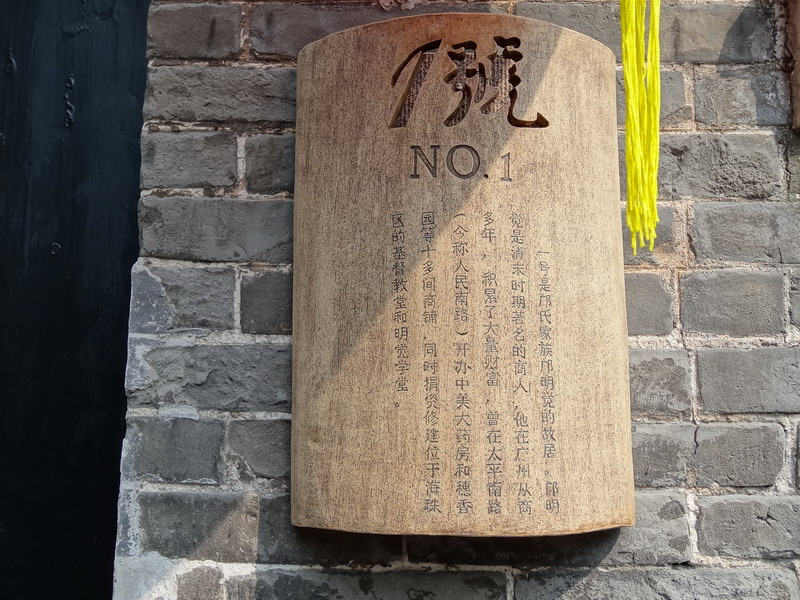 1號
NO.1
一号是邝氏家族邝明觉的故居。邝明
觉是清末时期著名的商人，他在广州从商
多年，积累了大量财富，曾在太平南路
（今称人民南路）开办中美大药房和穗香
园等十多间商铺，同时捐资修建位于海珠
区的基督教堂和明觉学堂。